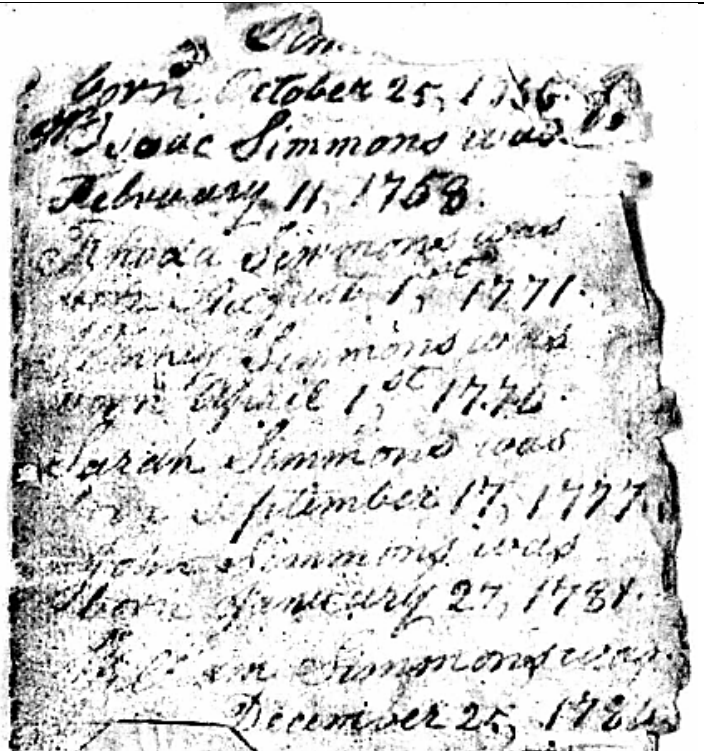 Sim
born October 25, 1756.
Isaac Simmons was
February 11, 1758.
Rhoda Simmons was
born August 1st 1771.
Simmons was
born April 1st, 1776.
Sarah Simmons was
born September 17, 1777
John Simmons was
born January 27, 1781.
William Simmons was
December 25, 178